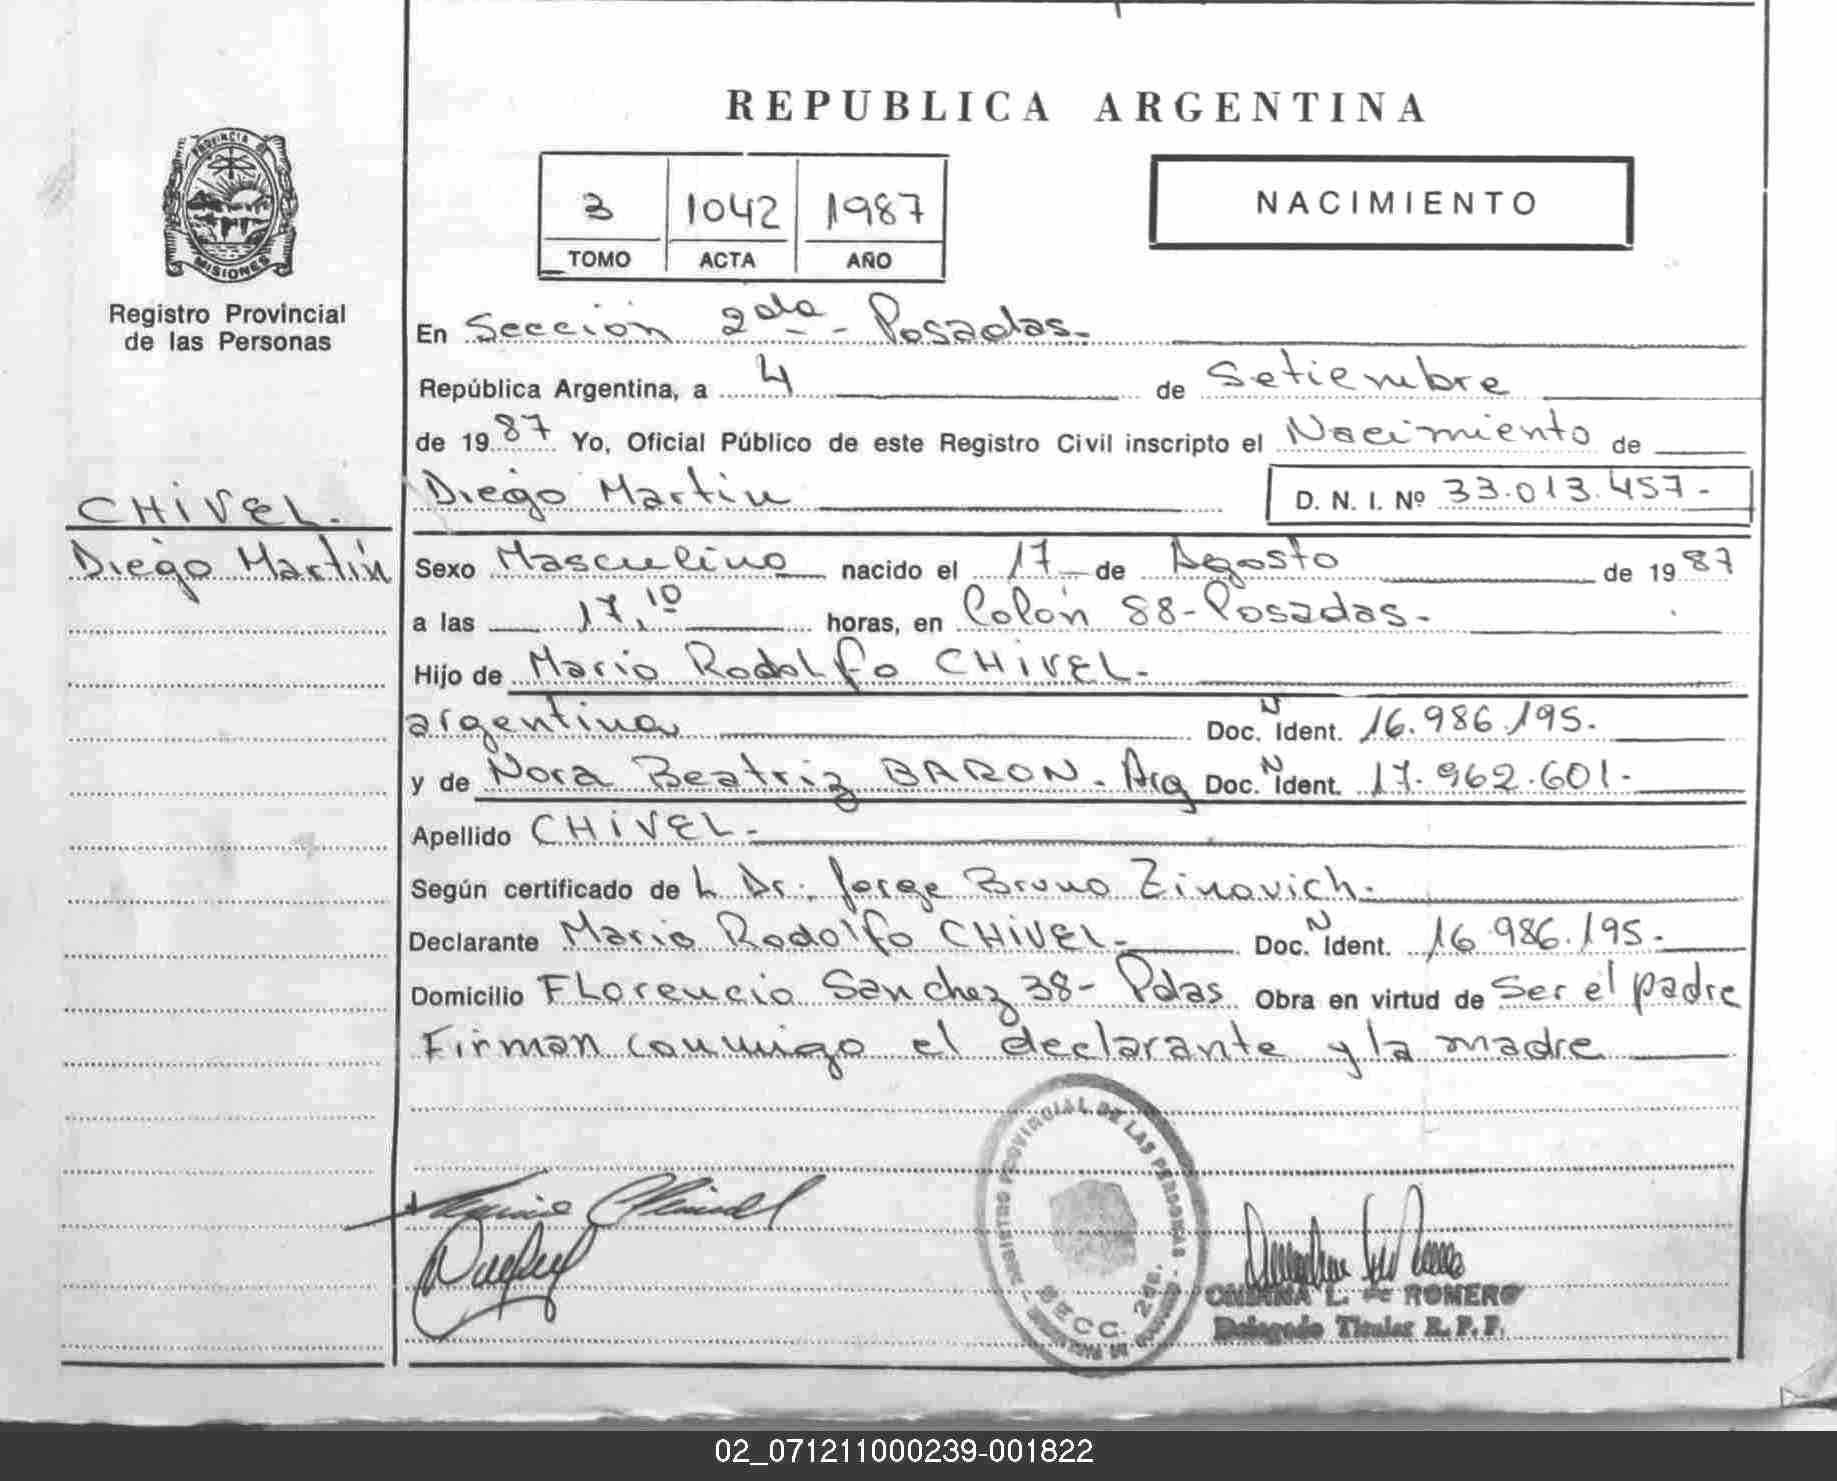 REPUBLICA ARGENTINA
PROVINCIA DE
MISIONES
Registro Provincial
de las Personas
3 1042 1987
TOMO ACTA AÑO
NACIMIENTO
En Sección 2da - Posadas-
República Argentina, a 4 de Setiembre
de 1987 Yo, Oficial Público de este Registro Civil inscripto el Nacimiento de
CHIVEL.
Diego Martin
Diego Martin D. N. I. Nº 33.013.457-
Sexo Masculino nacido el 17 de Agosto de 1987
a las 17,10 horas, en Colón 88-Posadas-
Hijo de Mario Rodolfo CHIVEL-
argentina Doc. N Ident. 16.986.195.
y de Nora Beatriz BARON- Arg Doc. N Ident. 17.962.601-
Apellido CHIVEL-
Según certificado de L Dr. Jorge Bruno Zinovich-
Declarante Mario Rodolfo CHIVEL- Doc. N Ident. 16.986.195-
Domicilio FLorencio Sanchez 38- Pdas Obra en virtud de Ser el padre
Firman conmigo el declarante y la madre
REGISTRO PROVINCIAL DE LAS PERSONAS
SECC. 2da.
L. de ROMERO
Delegado Titular R.P.P.
02_071211000239-001822